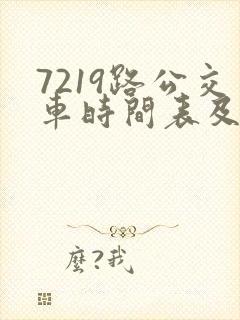 7219路公交
車時間表及
麼?我